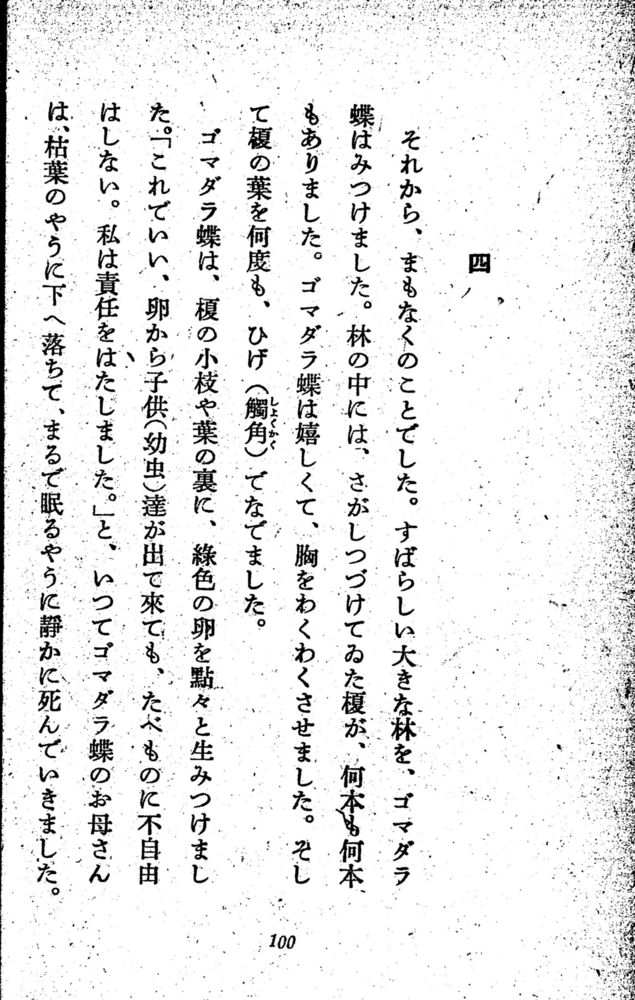 四
それから、まもなくのことでした。すばらしい大きな林を、ゴマダラ
蝶はみつけました。林の中には、さがしつづけてゐた榎が、何本も何本
もありました。ゴマダラ蝶は嬉しくて、胸をわくわくさせました。そし
て榎の葉を何度も、ひげ（觸角しよくかく）でなでました。
ゴマダラ蝶は、榎の小枝や葉の裏に、綠色の卵を點々と生みつけまし
た。「これでいい、卵から子供（幼虫）達が出て來ても、たべものに不自由
はしない。私は責任をはたしました。」と、いつてゴマダラ蝶のお母さん
は、枯葉のやうに下へ落ちて、まるで眠るやうに靜かに死んでいきました。
100